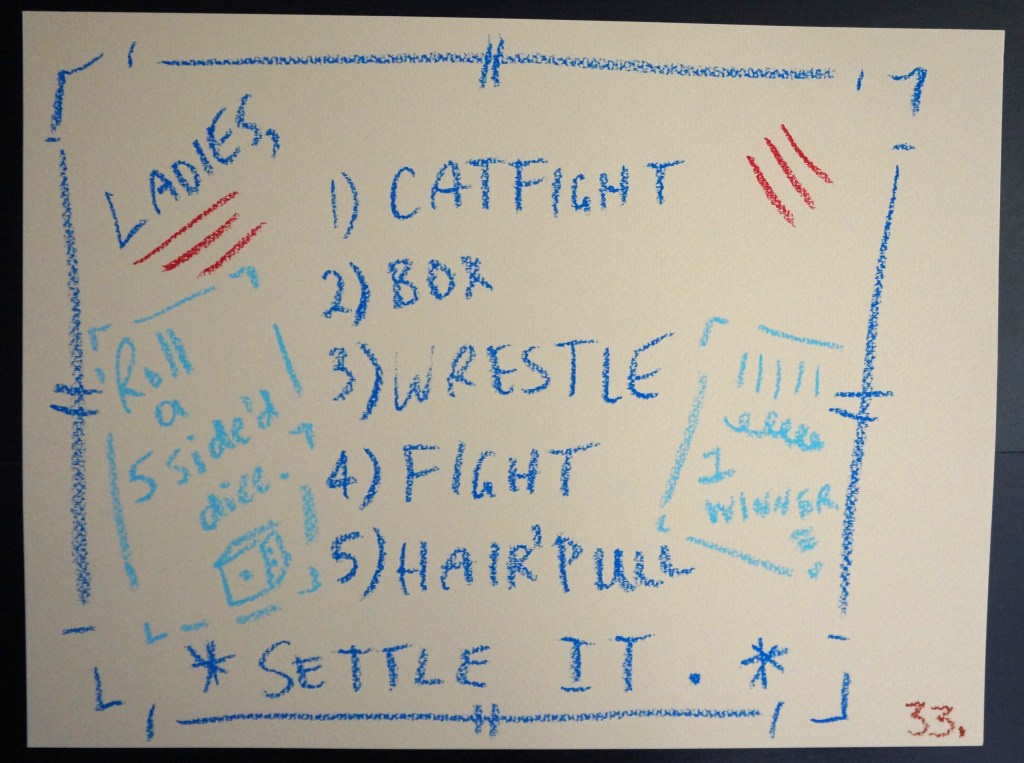 LADIES,
1) CATFIGHT
2) BOX
3) WRESTLE
4) FIGHT
5) HAIR'PULL
Roll
a
5 side'd
dice.
1
WINNER
* SETTLE IT. *
33.